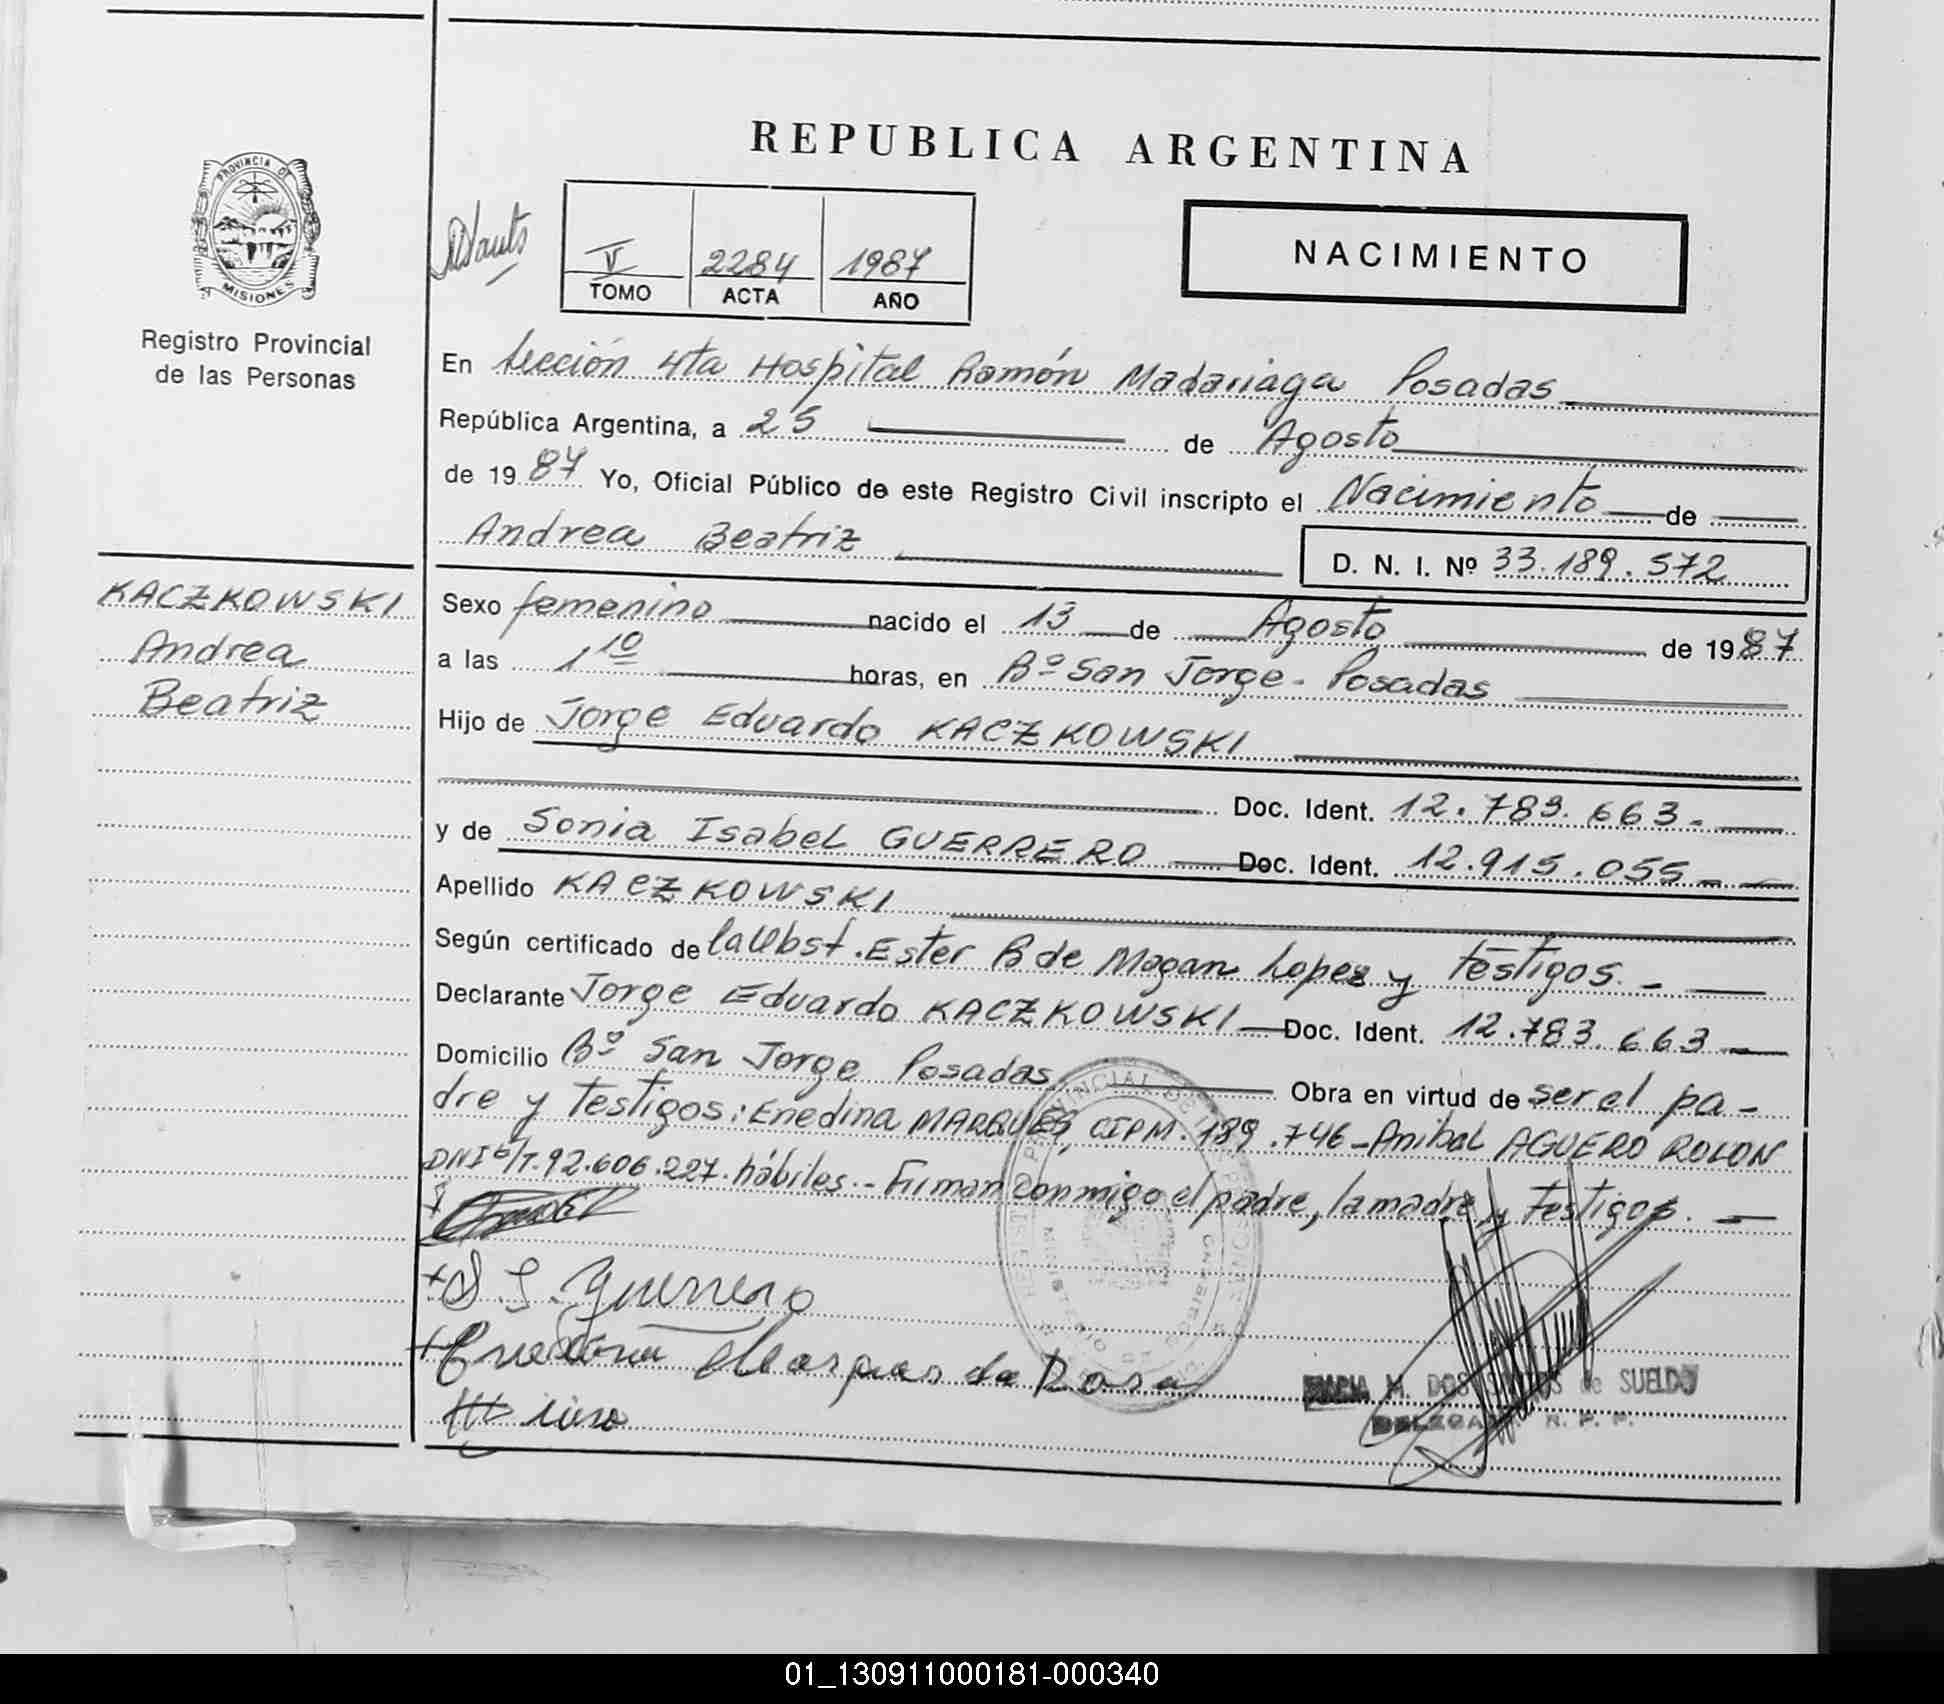 REPUBLICA ARGENTINA
PROVINCIA DE
MISIONES
Registro Provincial
de las Personas
V 2284 1987
TOMO ACTA AÑO
NACIMIENTO
En Sección 4ta Hospital Ramón Madariaga Posadas
República Argentina, a 25 de Agosto
de 1987 Yo, Oficial Público de este Registro Civil inscripto el Nacimiento de
Andrea Beatriz D. N. I. Nº 33.189.572
KACZKOWSKI
Andrea
Beatriz
Sexo femenino nacido el 13 de Agosto de 1987
a las 1 10 horas, en Bº San Jorge - Posadas
Hijo de Jorge Eduardo KACZKOWSKI
Doc. Ident. 12.783.663.-
y de Sonia Isabel GUERRERO Doc. Ident. 12.915.055.-
Apellido KACZKOWSKI
Según certificado de la Obst. Ester B de Magan Lopez y Testigos.-
Declarante Jorge Eduardo KACZKOWSKI Doc. Ident. 12.783.663
Domicilio Bº San Jorge Posadas Obra en virtud de ser el pa-
dre y Testigos: Enedina MARQUES, CIPM. 189.746 - Anibal AGUERO ROLON
DNI E/T. 92.606.227. hábiles.- Firman conmigo el padre, la madre y Testigos.
S I. Guerrero
Enedina Marques da Rosa
M. DOS SANTOS de SUELDO
DELEGADA R. P. P.
01_130911000181-000340